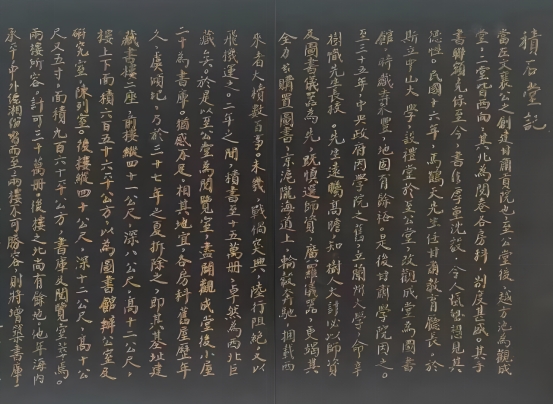 積石堂記
當左文襄公之創建甘肅貢院也至公堂後越方池為觀成
堂二堂凡西向其北為閱卷各房科制度甚盛其手
書聯額充棟至今書作厚重沈毅令人低徊想見其
德性民國十六年馬鶴天先生任甘肅教育廳長於
斯立中山大學設禮堂於至公堂改觀成堂為圖書
館時鹹草創地固有餘裕是後甘肅學院因之
至三十五年中央政府因學院之舊立蘭州大學命辛
樹幟先生長校先生遠矚高瞻知樹人大計必以師資
及圖書儀器為先既慎選師資廣羅儀器更竭其
全力於購置圖書京滬隴海道上輪載車馳捆載西
來者大積數百事未幾戰禍突興陸行阻絕又以
飛機運二年之間積書至十五萬冊卓然為西北巨
藏矣於是以至公堂為閱覽室盡闢觀成堂後小屋
二十為書庫猶感不足相其地宜各房科舊屋歷年
久虞傾圮乃於三十七年之夏拆除之即其基址建
藏書樓二座前樓縱四十一公尺深八公尺高十一公尺
樓上下面積六百五十六方公尺以為圖書館辦公室及
研究室陳列室後樓縱四十公尺深十二公尺高十公
尺又五寸面積九百六十平公方書庫又閱覽室in焉
兩樓所容計可三十萬冊後樓之北尚有餘地他年海內
承平中外絃湘篤而至兩樓不可勝容則將增築書庫